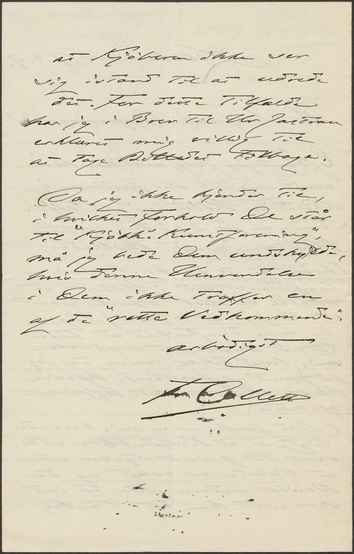 at Kjøberen ikke ser
sig istand til at udrede
den. For dette Tilfælde
har jeg i Brev til Hr
erklæret mig villig til
at tage Billedet tilbage.
Da jeg ikke kjender til,
i hvilket Forhold De står
til "Kunstforening",
må jeg bede Dem undskylde,
hvis denne Henvendelse
i Dem ikke træffer en
af de "rette Vedkommende".
ærbødigst
Collett